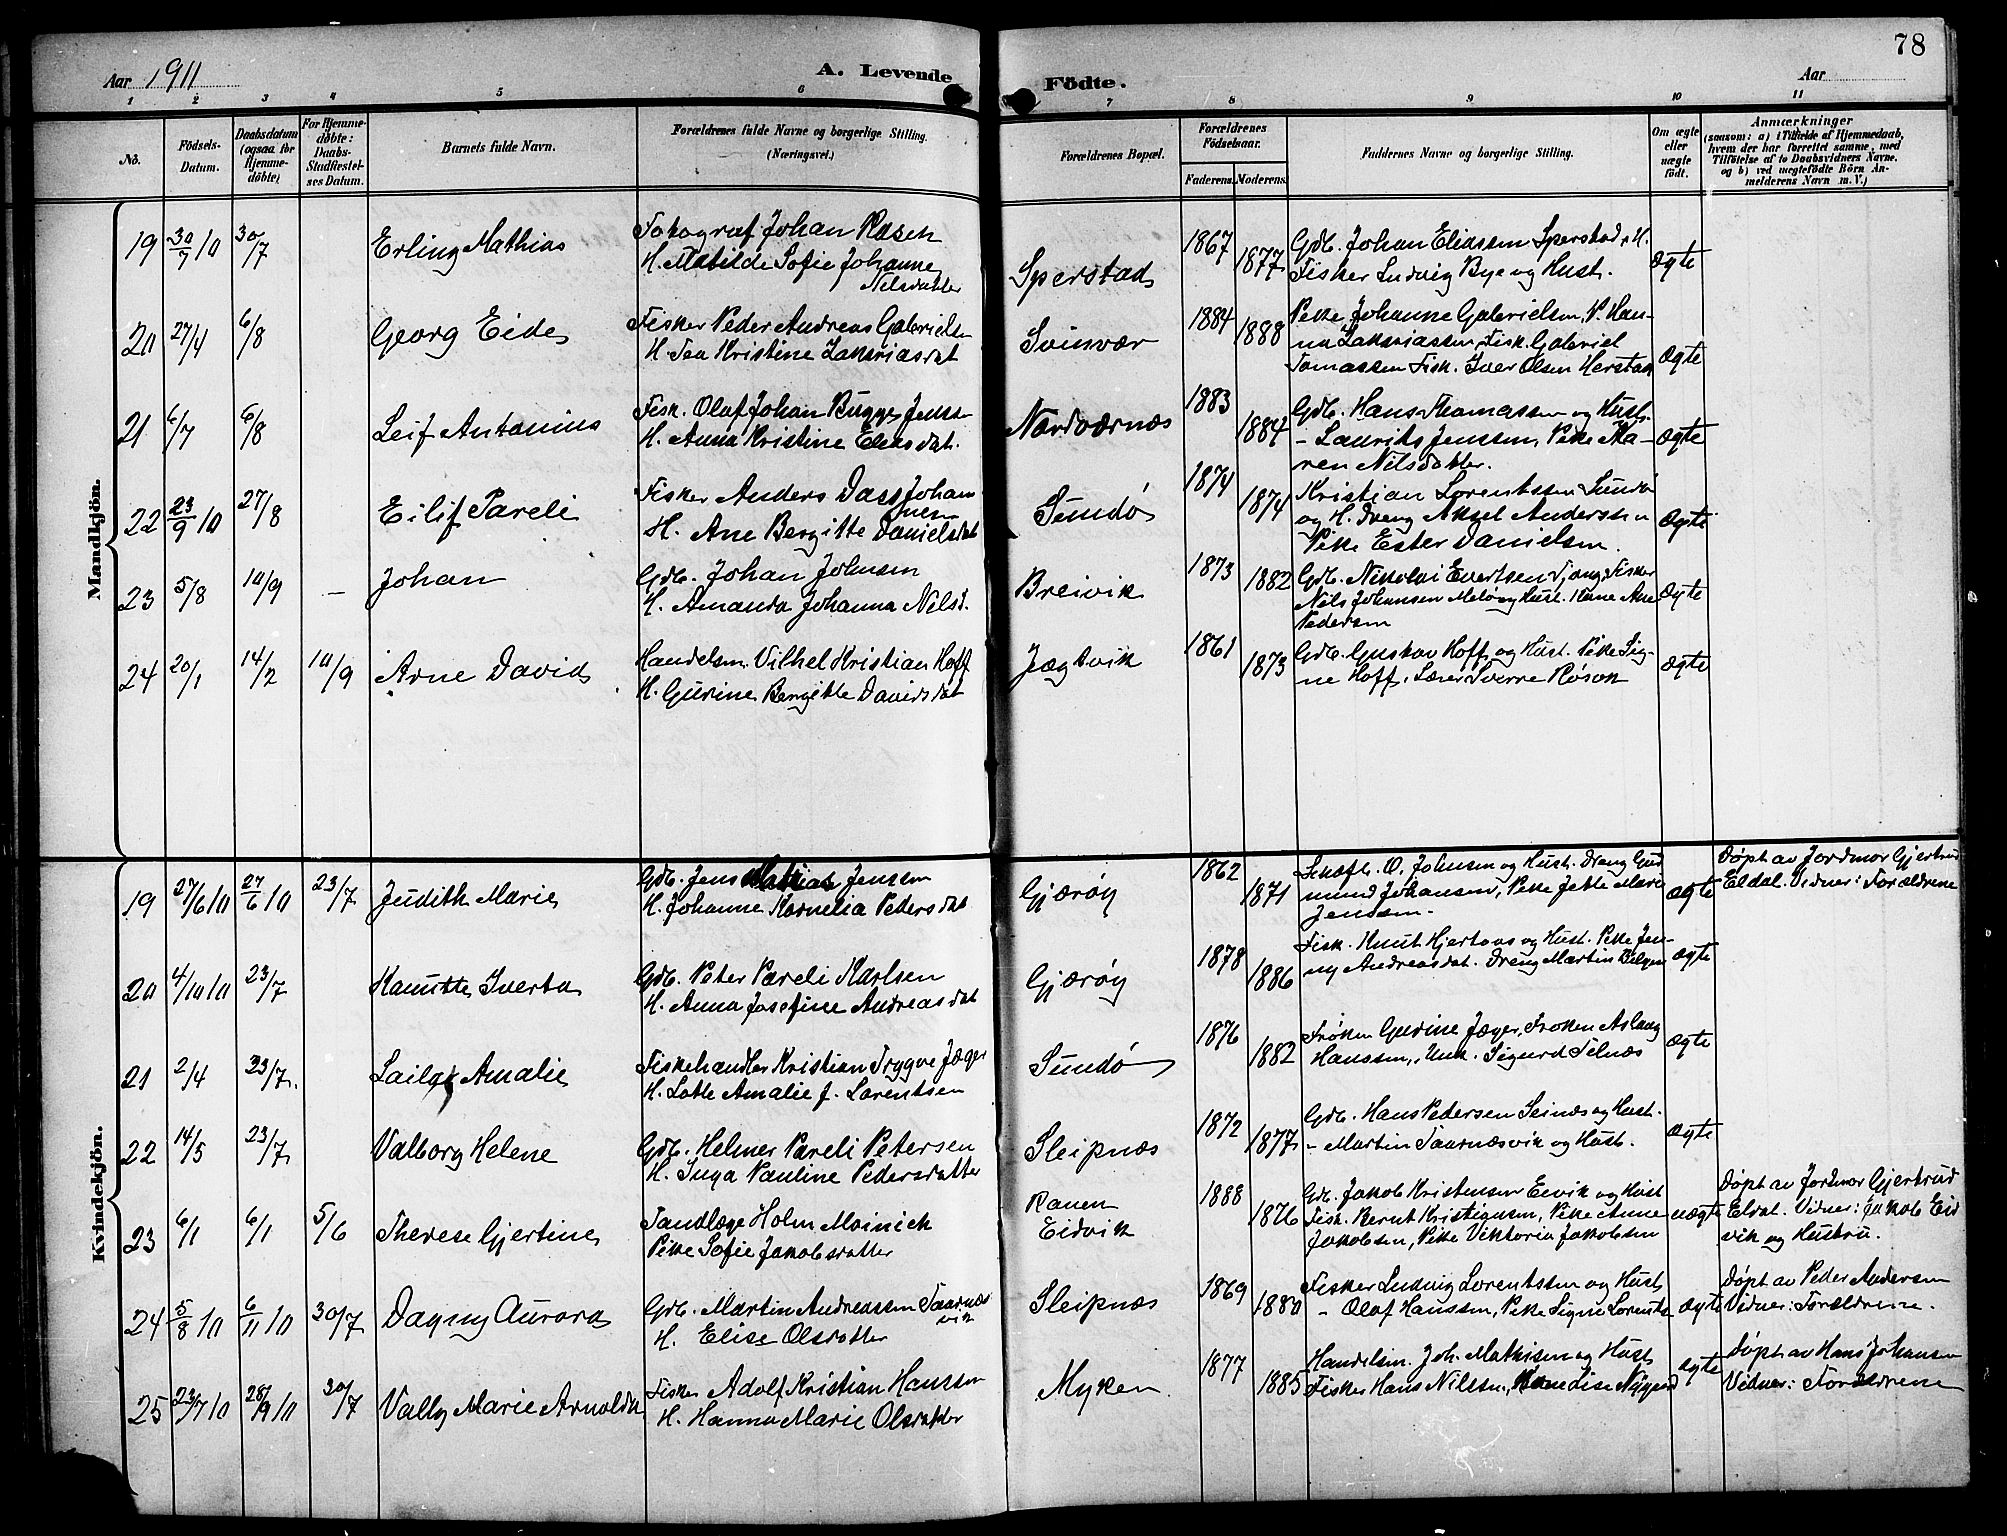 78
Aar 1911
A. Levende
Födte.
Aar
1 2 3 4 5 6 7 8 9 10 11
No.
Födsels-
Datum.
Daabsdatum
(ogsaa for
Hjemme-
döbte)
For Hjemme-
döbte:
Daabs-
Stadfæstel-
ses Datum.
Barnets fulde Navn.
Forældrenes fulde Navne og borgerlige Stilling.
(Næringsvei.)
Forældrenes Bopæl.
Forældrenes
Födselsaar.
Faderens. Moderens.
Faddernes Navne og borgerlige Stilling.
Om ægte
eller
uægte
födt.
Anmærkninger
(saasom: a) i Tilfælde af Hjemmedaab,
hvem der har forrettet samme, med
Tilföielse af to Daabsvidners Navne.
og b) ved uægtefödte Börn An-
melderens Navn m. V.)
Mandkjön.
19 30/7 10 30/7 Erling Mathias
Fotograf Johan Rasch
H. Matilde Sofie Johanne
Nilsdatter
Sperstad 1867 1877
Gdb. Johan Eliassen Sperstad, H.
Fisker Ludvig Bye og Hust.
ægte
20 27/4 6/8 Georg Eide
Fisker Peder Andreas Gabrielsen
H. Tea Kristine Zakriasdat
Svinvær 1884 1888
Pike Johanne Gabrielsen, P. Han-
na Zakriassen, Fisk. Gabriel
Tomassen Fisk. Iver Olsen Herstad
ægte
21 6/7 6/8 Leif Antonius
Fisk. Olaf Johan Bugge Jenss
H. Anna Kristine Eliasdat.
Nordværnæs 1883 1884
Gdb. Hans Thomassen og Hust.
- Laurits Jenssen, Pike Ma-
ren Nilsdatter.
ægte
22 23/9 10 27/8 Eilif Pareli
Fisker Anders Dass Johan
nesen
H. Ane Bergitte Danielsdat
Sundö 1874 1874
Kristian Lorentssen Sundö
og H. Dreng Aksel Anderssen
Pike Ester Danielsen.
ægte
23 5/8 10/9 - Johan
Gdb. Johan Johnsen
H. Amanda Johanna Nilsd.
Breivik 1873 1882
Gdb. Nikolai Evertsen Tjong, Fisker
Nils Johansen Melö og Hust. Kone Ane
Pedersen
ægte
24 20/1 14/2 10/9 Arne David
Handelsm. Vilhel Kristian Hoff
H. Gurine Bergitte Davidsdat
Jægtvik 1861 1873
Gdb. Gustav Hoff og Hust. Pike Sig-
ne Hoff. Lærer Sverre Røsok
ægte
Kvindekjön.
19 27/6 10 27/6 10 23/7 Judith Marie
Gdb. Jens Mathias Jenssen
H. Johanne Kornelia Pedersdat
Gjærøy 1862 1871
O. Johnsen og Hust. Dreng Gud
mund Johansen, Pike Jette Marie
Jenssen.
ægte
Døpt av Jordmor Gjertrud
Eldal. Vidner: Forældrene
20 4/10 10 23/7 Kanutte Iverta
Gdb. Peter Pareli Karlsen
H. Anna Josefine Andreasdat
Gjærøy 1878 1886
Fisk. Knut Hjertaas og Hust. Pike Jen-
ny Andreasdat. Dreng Martin
ægte
21 2/4 23/7. Laila Amalie
Fiskehandler Kristian Trygve Jæger
H. Lotte Amalie f. Lorentsen
Sundö 1876 1882
Frøken Gurine Jæger, Frøken Aslaug
Hanssen, Unk. Sigurd Selnæs
ægte
22 14/5 23/7 Valborg Helene
Gdb. Helmer Pareli Petersen
H. Inga Pauline Pedersdatter
Sleipnæs 1872 1877
Gdb. Hans Pedersen Seinæs og Hust.
- Martin Taarnæsvik og Hust.
ægte
23 6/1 6/1 5/6 Therese Gjertine
Tandlæge Holm Meinich
Pike Sofie Jakobsdatter
Ranen
Eidvik 1888 1876
Gdb. Jakob Kristensen Eivik og Hust
Fisk. Bernt Kristiansen, Pike Anne
Jakobsen, Pike Viktoria Jakobsen
uægte
Døpt av Jordmor Gjertrud
Eldal. Vidner: Jakob Eid
vik og Hustru.
24 5/8 10 6/11 10 30/7 Dagny Aurora
Gdb. Martin Andreassen Taarnæs
vik
H. Elise Olsdatter
Sleipnæs 1869 1880
Fisker Ludvig Lorentssen og Hust
- Olaf Hanssen, Pike Signe Lorents
ægte
Døpt av Peder Andersen
Vidner: Forældrene.
25 23/7 10 28/9 10 30/7 Vally Marie Arnolda
Fisker Adolf Kristian Hanssen
H. Hanna Marie Olsdatter
Myken. 1877 1885
Handelsm. Joh. Mathisen og Hust
Fisker Hans Nilssen, Kone Lise Nygaard
ægte
Døpt av Hans Johansen
Vidner: Forældrene